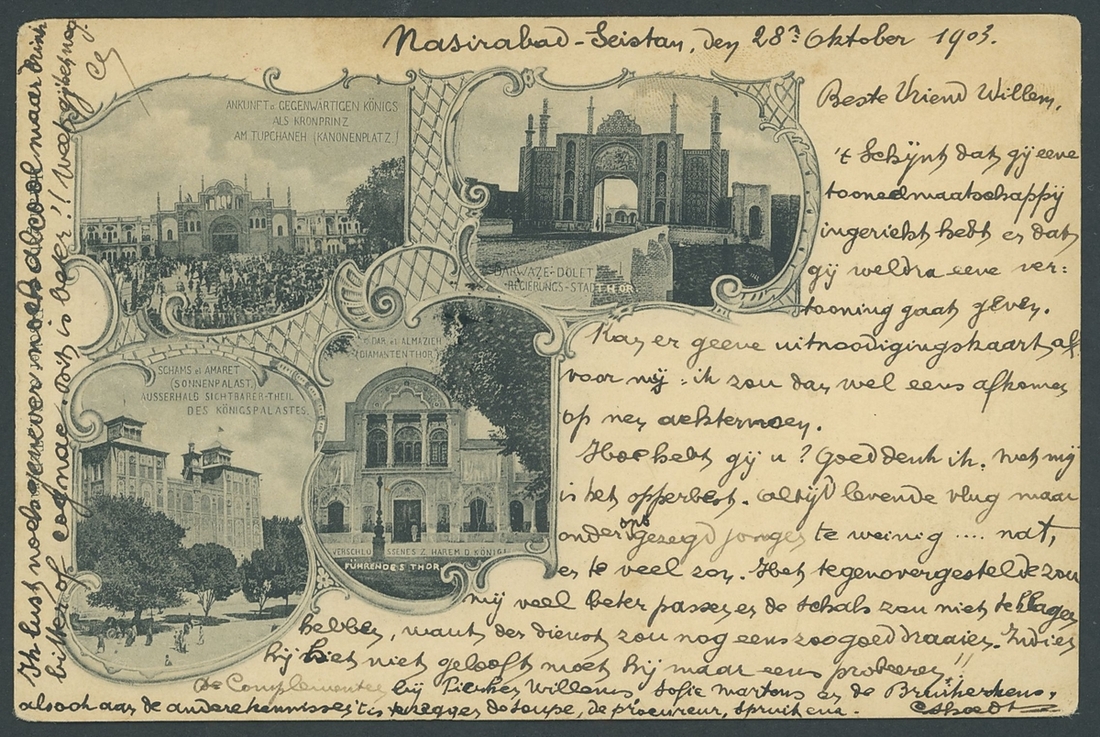 Nasirabad-Seistan, den 28n Oktober 1903.
Beste Vriend Willem,
't Schijnt dat gij eene
tooneelmaatschappij
ingericht hebt en dat
gij weldra eene ver:
tooning gaat geven.
Kan er geene uitnoodigingskaart af
voor mij : ik zou dan wel eens afkomen
op nen achternoen.
Hoe hebt gij u? Goed denk ik. Met mij
is het opperbest. Altijd levende vlug maar
onder ons gezegd jongen te weinig .... nat,
en te veel zon. Het tegenovergestelde zou
mij veel beter passen en de schals zou niet te klagen
hebben, want den dienst zou nog eens zoo goed draaien. Indien
hij het niet gelooft moet hij maar eens probeeren!!
De Complementen bij Pierken Willems, Sofie Martens en de Bruinkerckens,
alsook aan de andere kennissen 't is te zeggen de soupe, de procureur, spruit enz.
Ik lust noch genever noch alcool maar drink
bitter of cognac. Dat is beter!! Wat zegt gij
ANKUNFT d. GEGENWÄRTIGEN KÖNIGS
ALS KRONPRINZ
AM TUPCHANEH (KANONENPLATZ.)
DARWAZE-DOLET
REGIERUNGS-STADTTHOR
SCHAMS el AMARET
(SONNENPALAST.)
AUSSERHALB SICHTBARER-THEIL
DES KÖNIGSPALASTES.
DAR. el ALMAZIEH
(DIAMANTEN THOR)
VERSCHLOSSENES Z. HAREM D. KÖNIGS
FÜHRENDES THOR